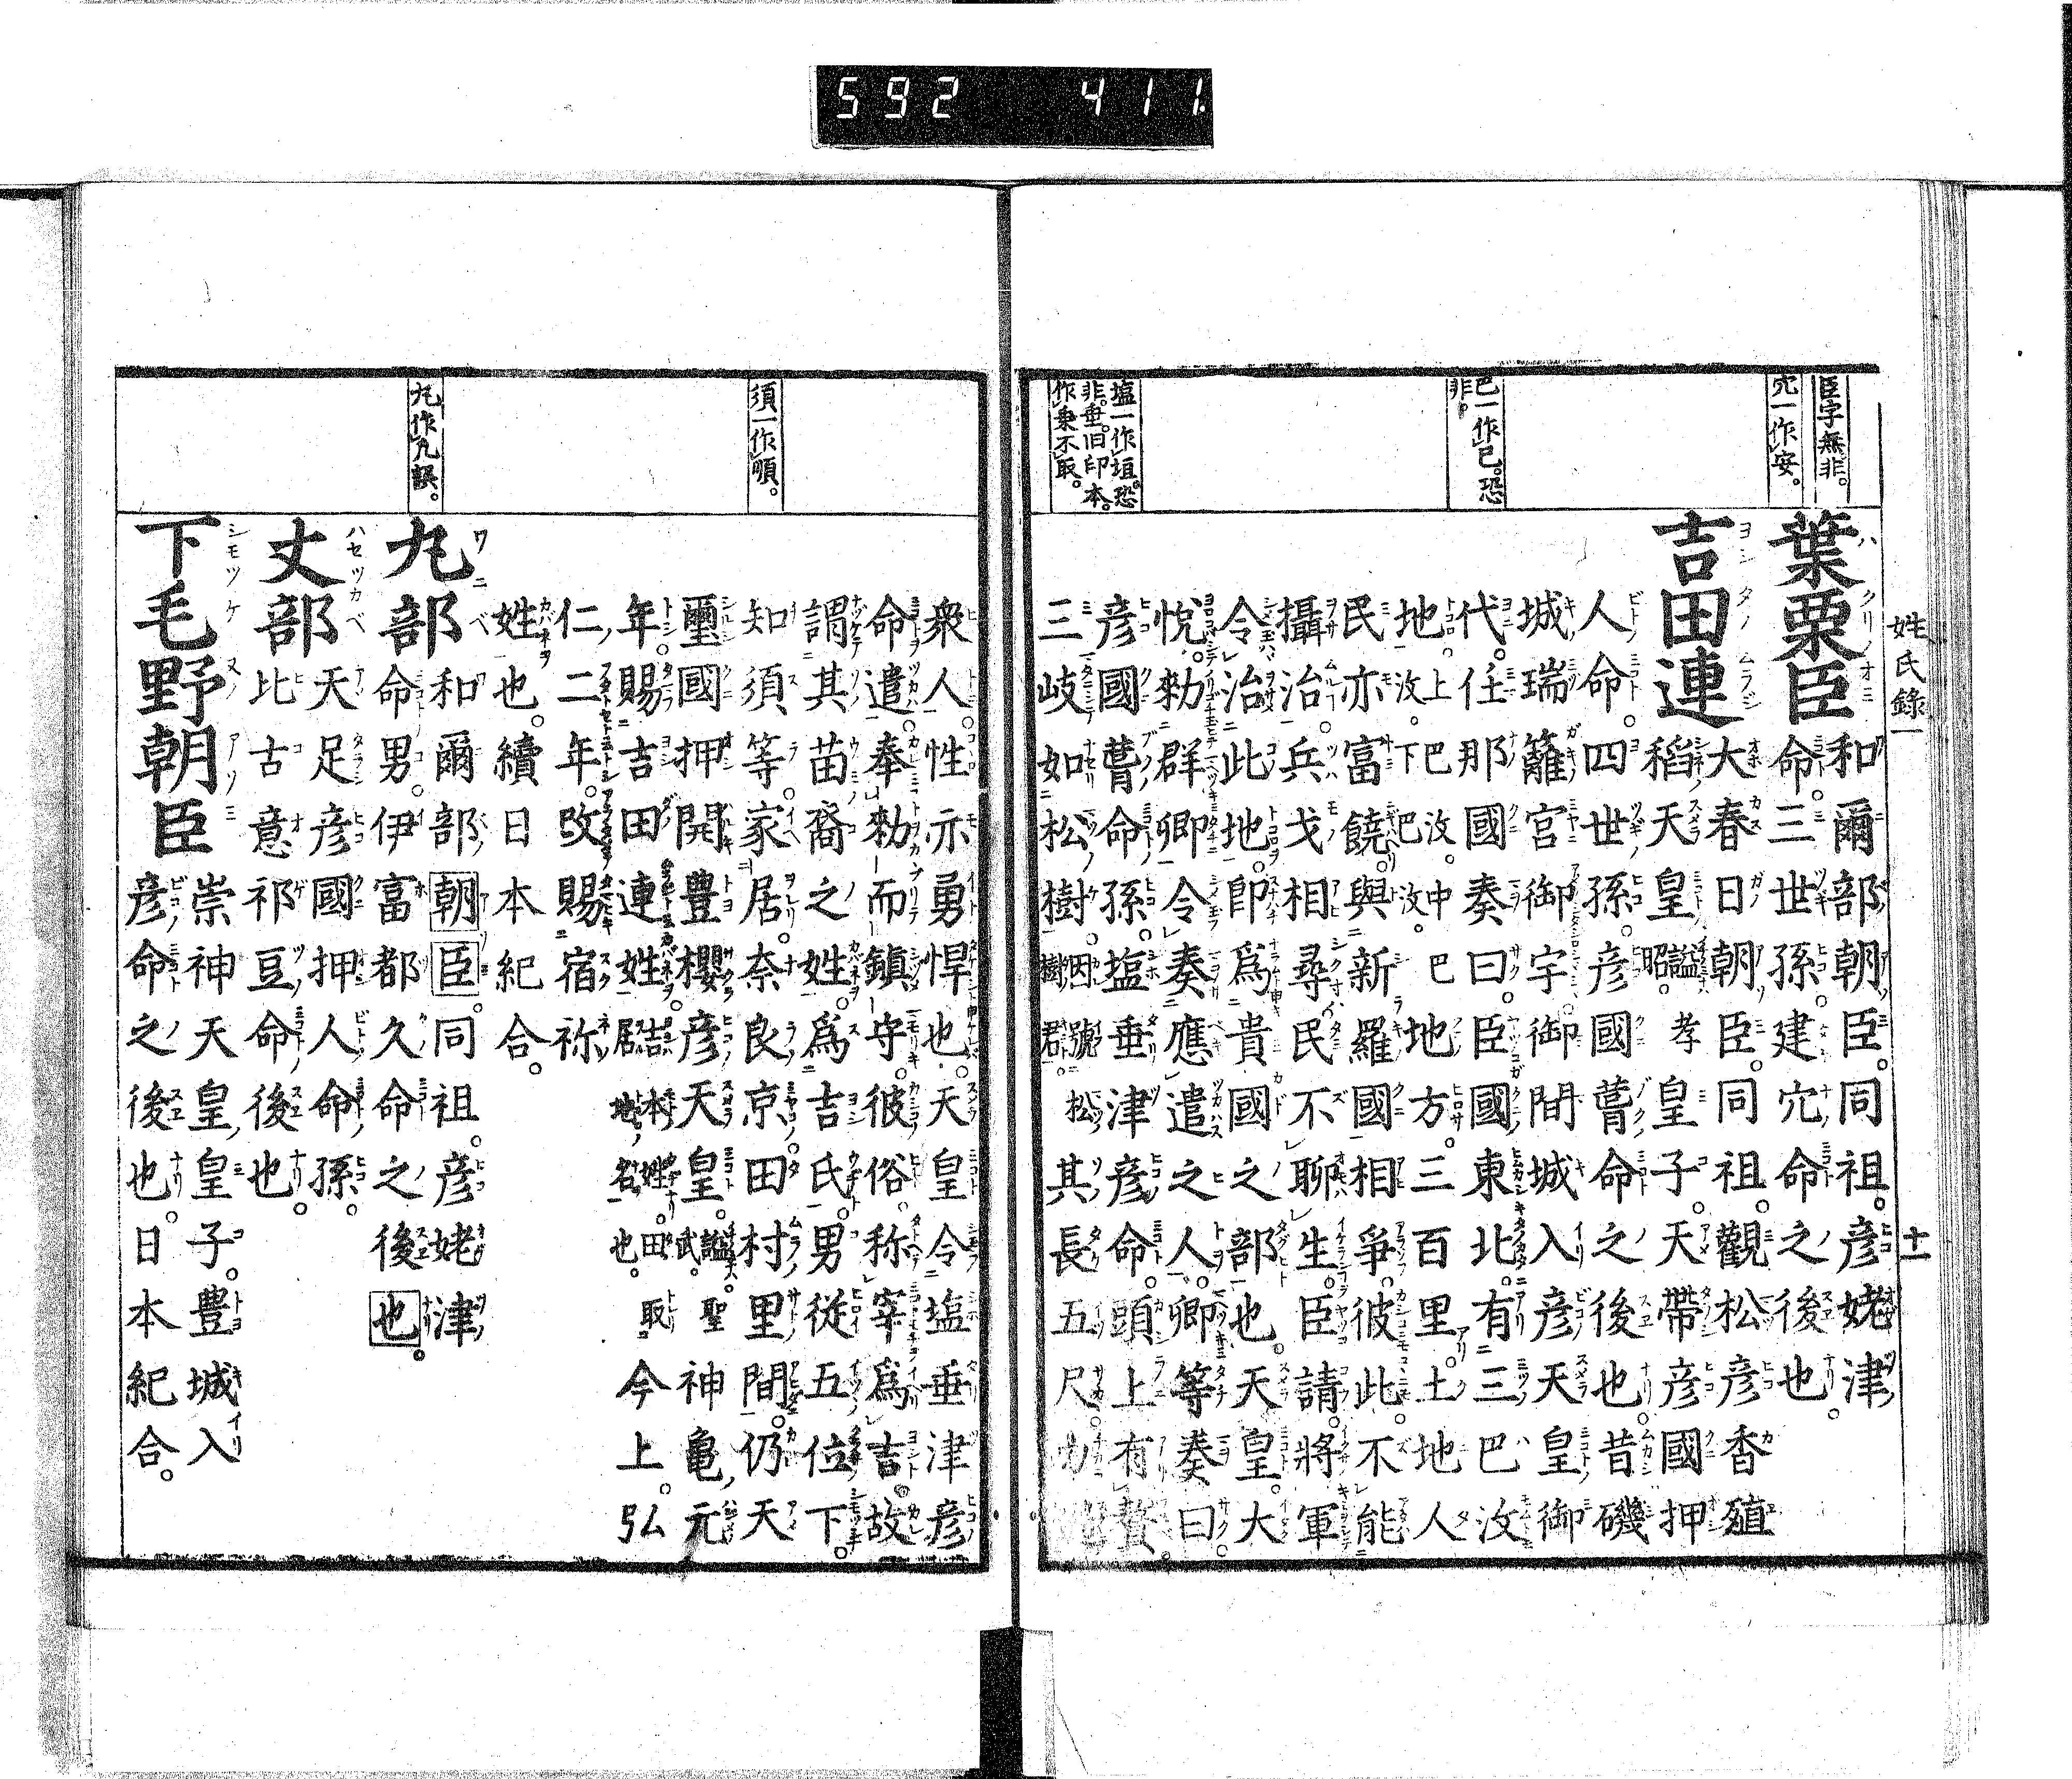 姓氏錄一
十一
臣字無非。
宂一作安。
巴一作已。恐
非。
塩一作垣。恐
非。垂。旧印本。
作乗不取。
葉栗臣
和爾部朝臣。同祖。彦姥津
命。三世孫。建宂命之後也。
吉田連
大春日朝臣。同祖。觀松彦香殖
稻天皇謚孝昭。皇子。天帶彦國押
人命。四世孫。彦國葺命之後也。昔磯
城瑞籬宮御宇御間城入彦天皇御
代。任那國奏曰。臣國東北。有三巴汶
地上巴汶。中巴汶。下巴汶。地方。三百里。土地人
民亦富饒。與新羅國相爭。彼此。不能
攝治。兵戈相尋。民不聊生。臣請。將軍
令治此地。即爲貴國之部也。天皇。大
悅。勅群卿令奏應遣之人。卿等奏曰。
彦國葺命。孫。塩垂津彦命。頭上有贅。
三岐如松樹因號松樹君。其長五尺。力
須一作順。
九作凡誤。
衆人性亦勇悍也。天皇令塩垂津彦
命遣。奉勅而鎮守彼俗。称宰爲吉。故
謂其苗裔之姓。爲吉氏。男従五位下。
知須等。家居。奈良京。田村里間。仍天
璽國押開豊櫻彦天皇。謚聖武。神亀元
年。賜吉田連姓。吉本姓。田取居地名也。今上。弘
仁二年。改賜宿祢
姓也。續日本紀合。
九部
和爾部朝臣。同祖。彦姥津
命男。伊富都久命之後也。
丈部
天足彦國押人命孫。
比古意祁豆命後也。
下毛野朝臣
崇神天皇皇子。豊城入
彦命之後也。日本紀合。
592 411